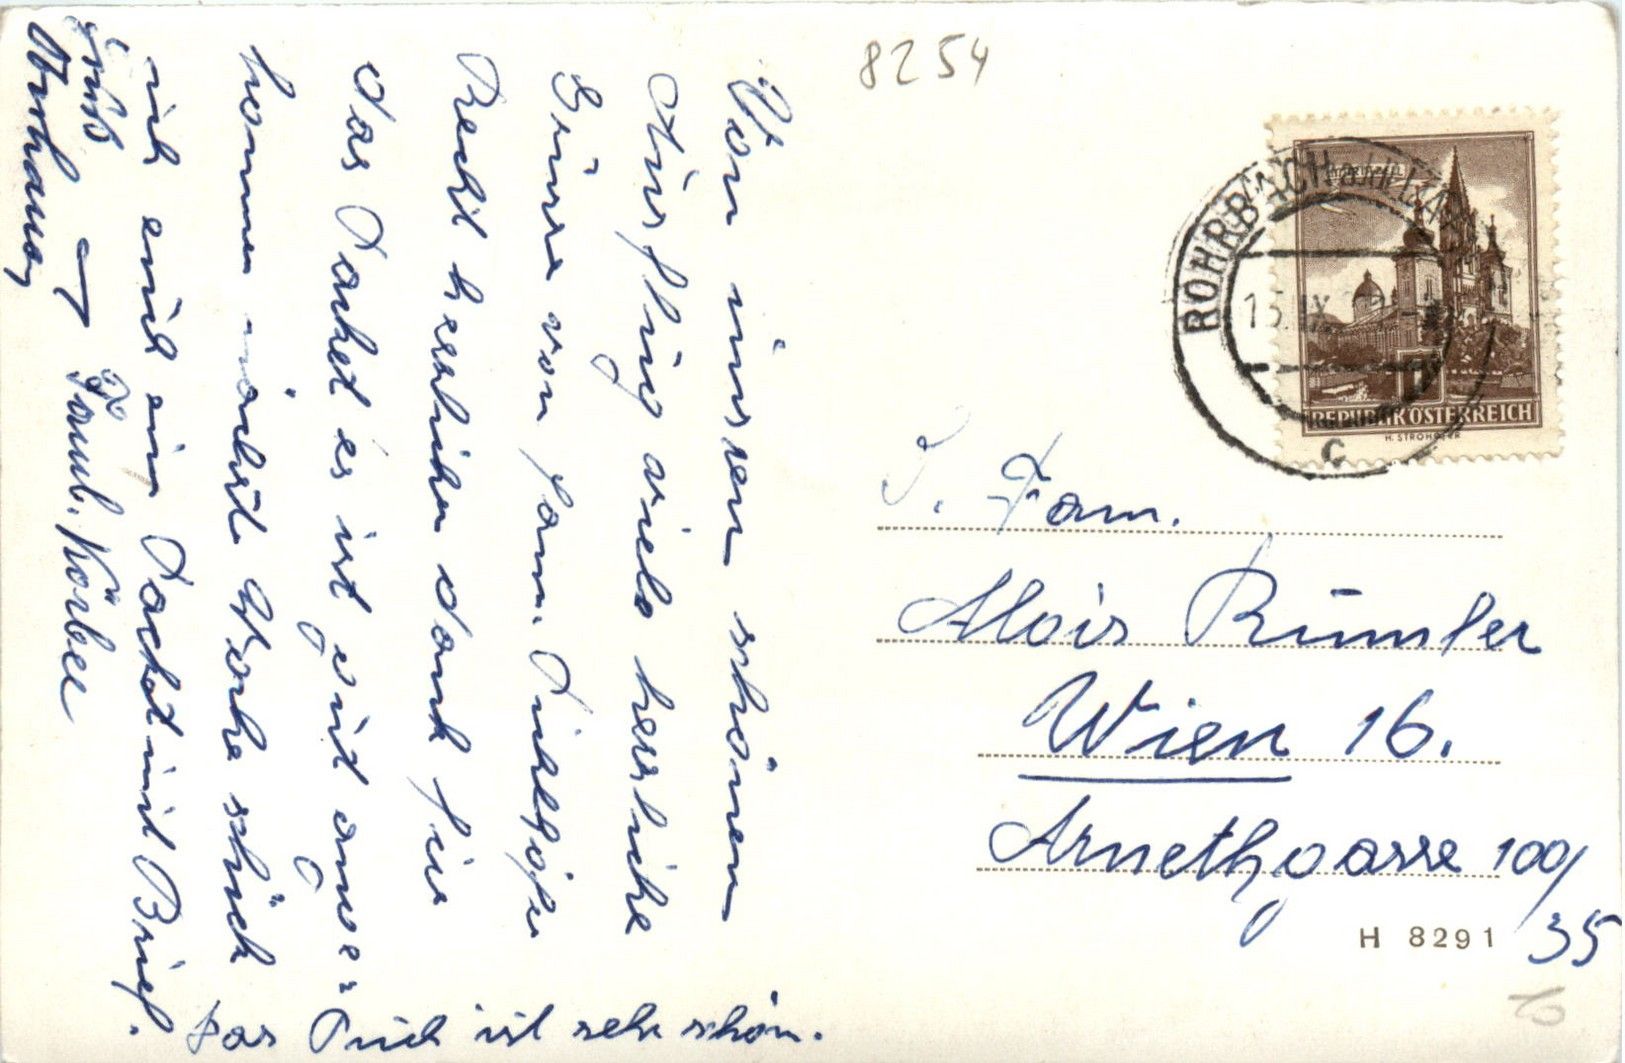 Von unseren schönen
Ausflug viele herzliche
Grüsse von Fam.
Recht herzlichen dank für
das Packet es ist gut ange=
kommen nächste Woche schick
ich euch ein Packet mit Brief.
Gruß
Fam. Körbel
Das Tuch ist sehr schön.
8254
ROHRBACH
15. IX.
c
REPUBLIK ÖSTERREICH
Fam.
Alois Rümsler
Wien 16.
Arnethgasse 100/
35
H 8291